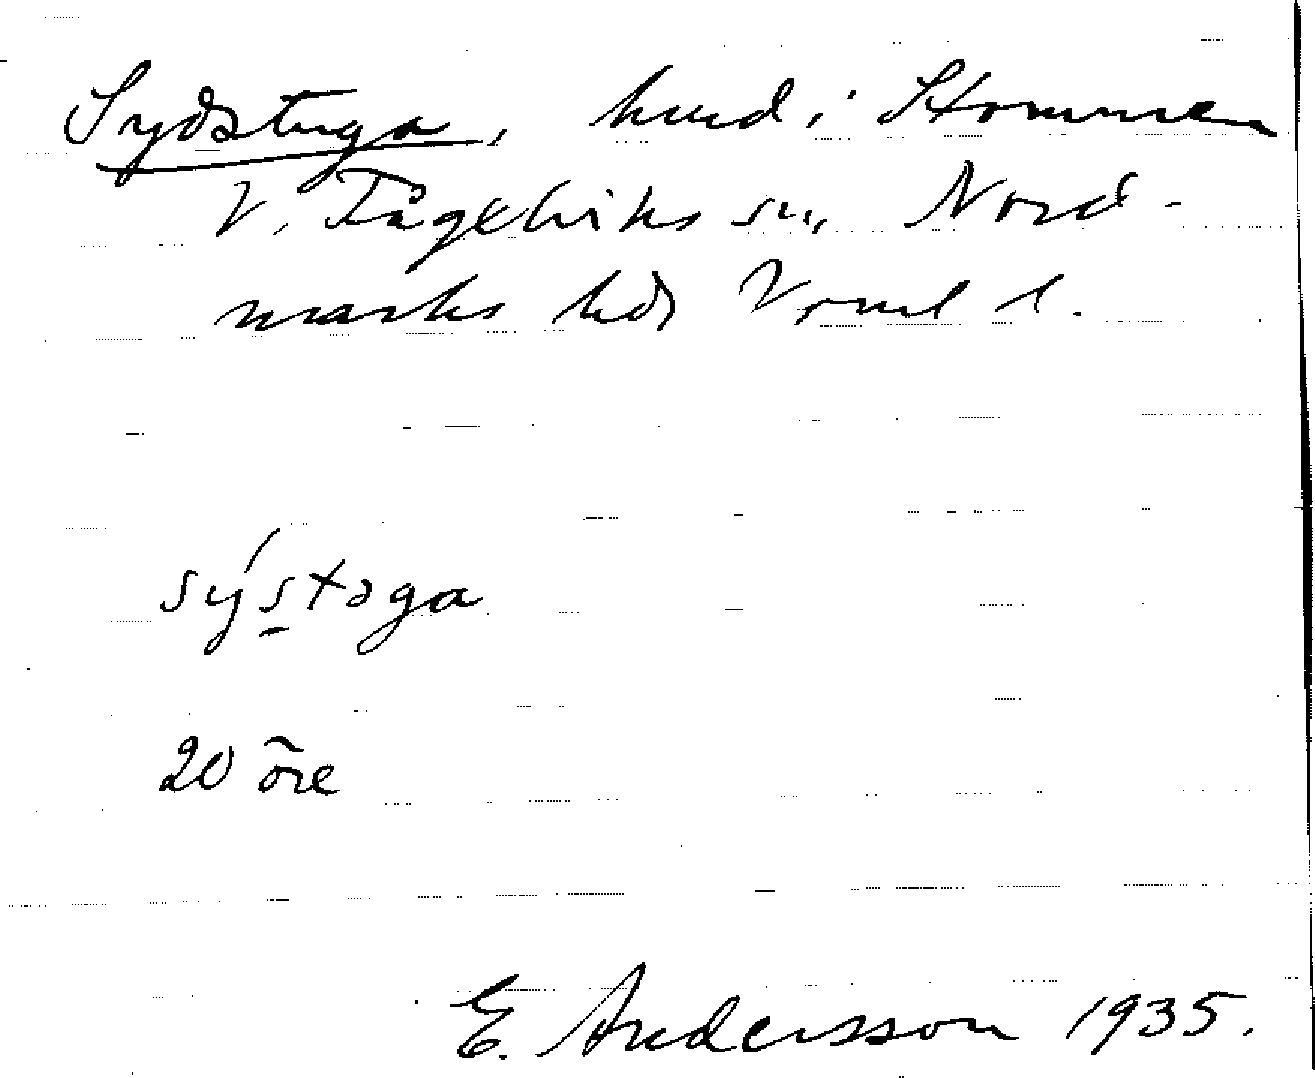 Sydstuga, hmd i Stommen
V. Fågelviks sn, Nord-
marks hd, Vrml l.
sýstəga
20 öre
E. Andersson 1935.